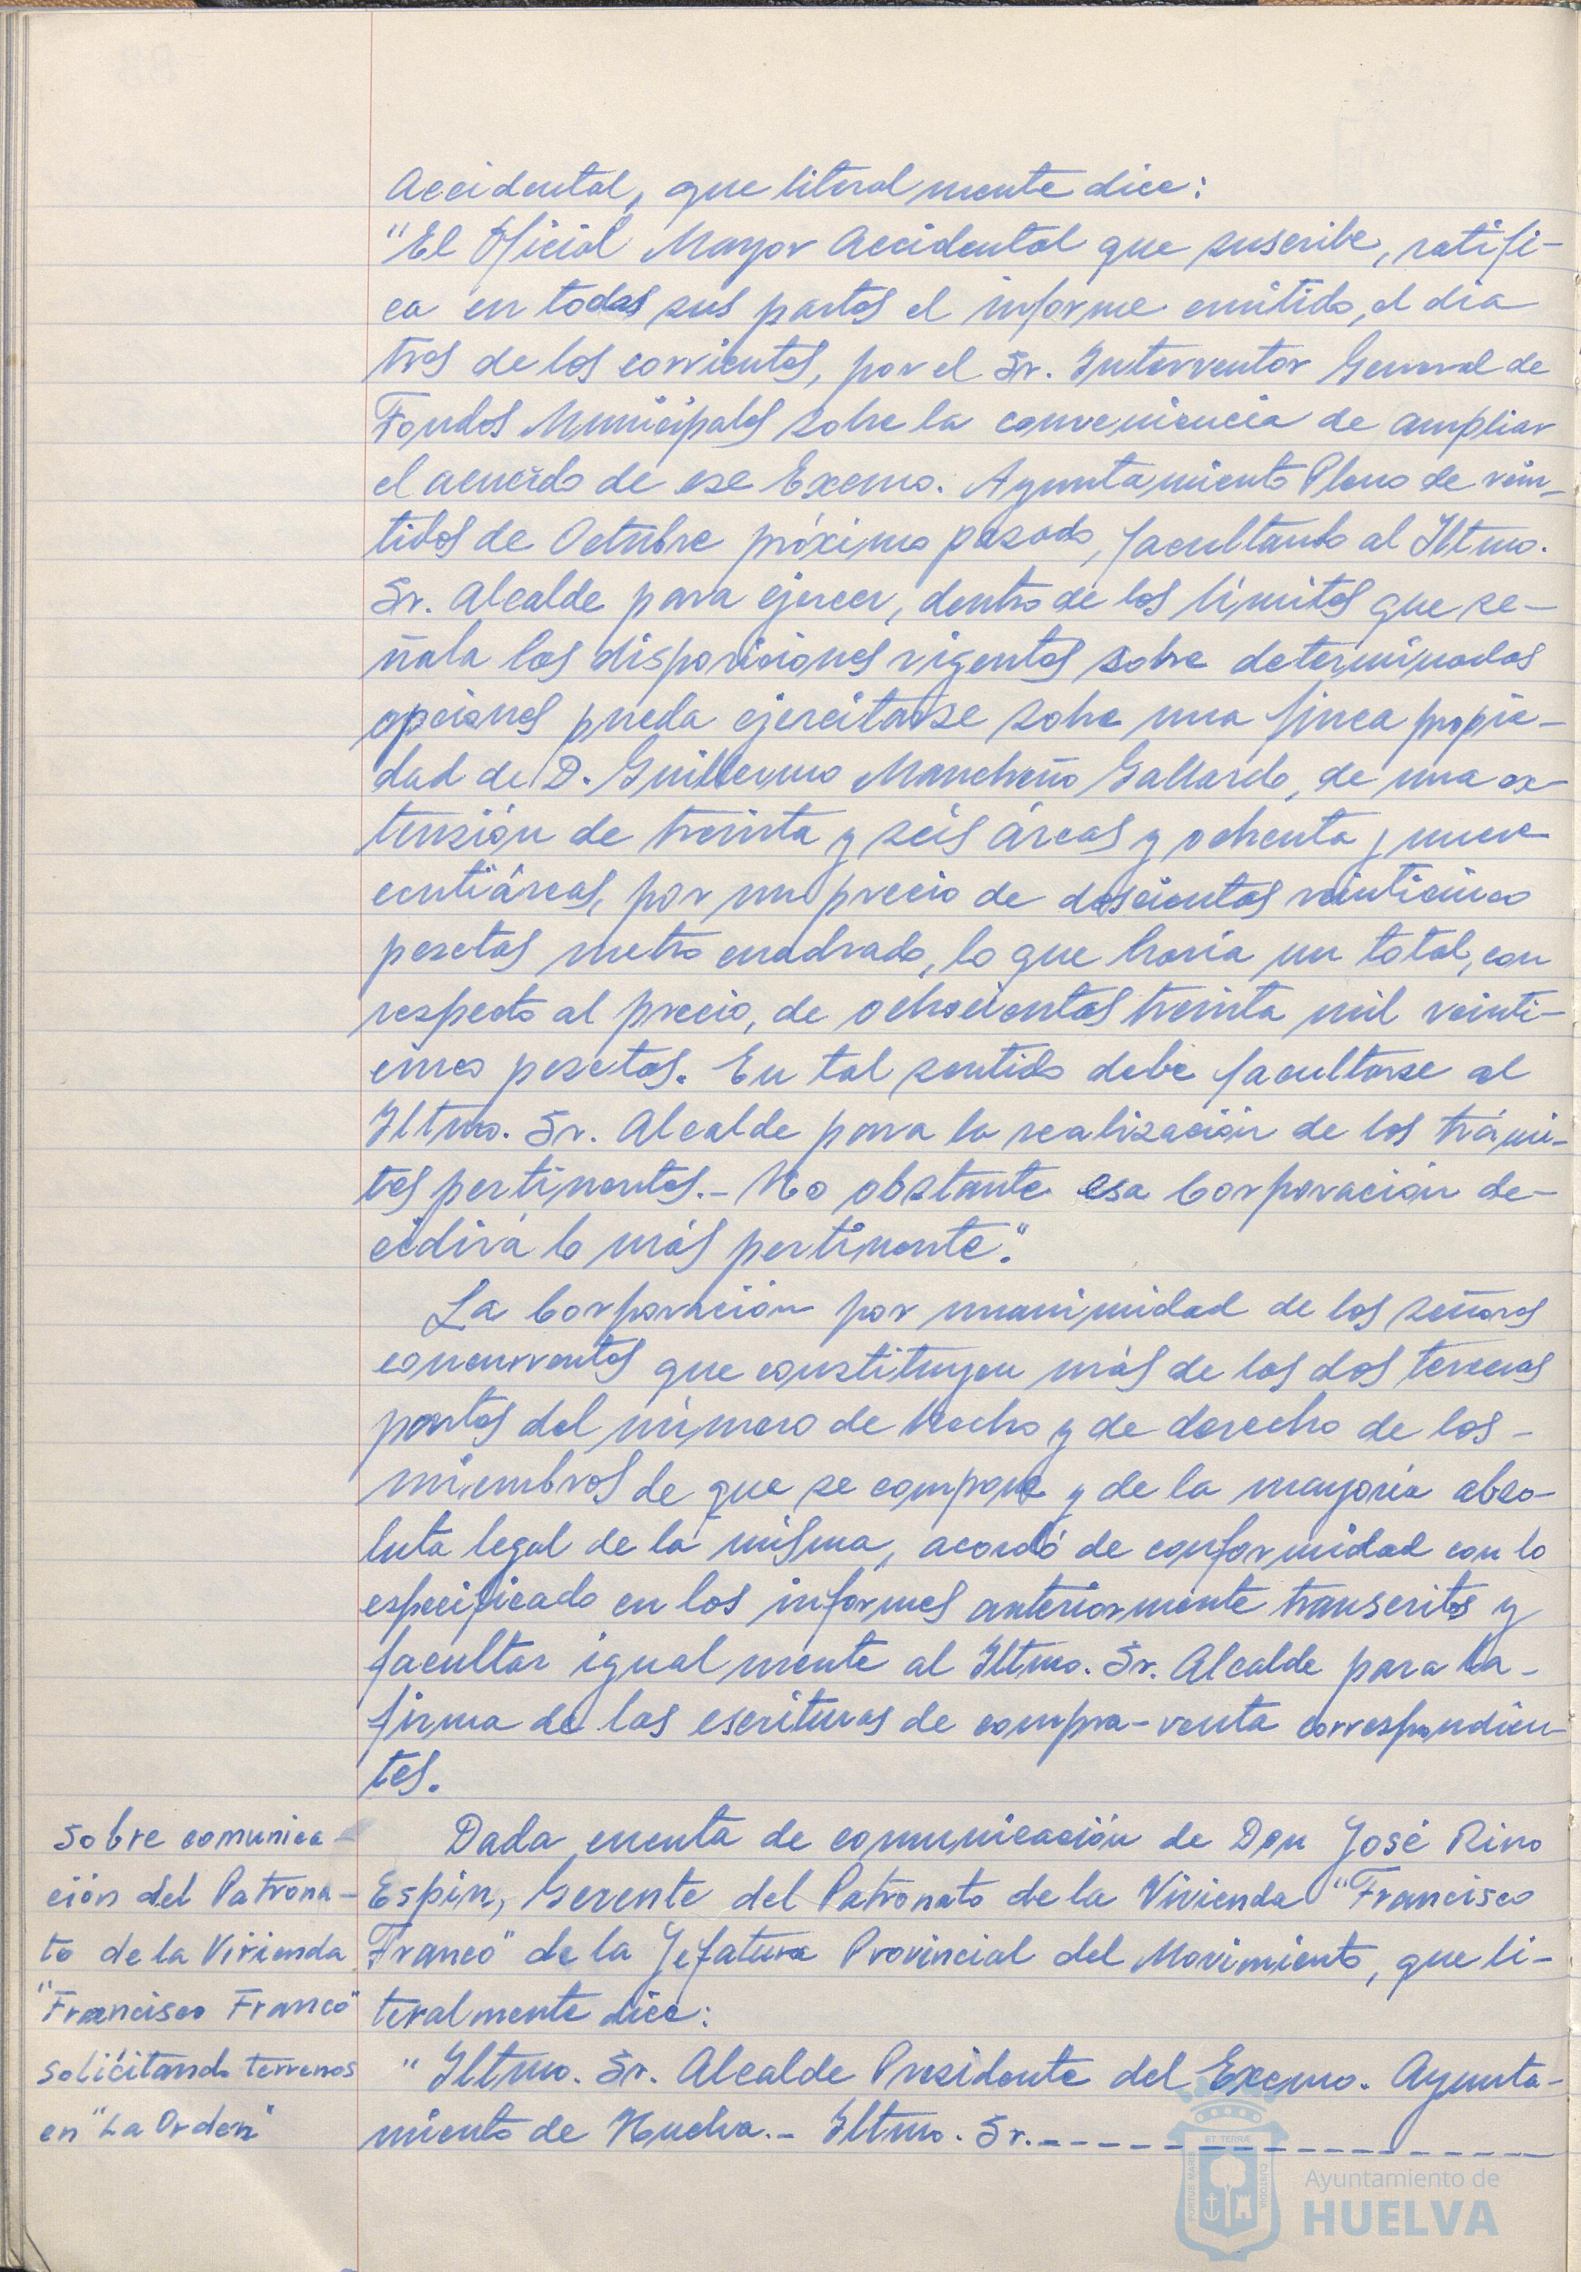 Accidental, que literalmente dice:
"El Oficial Mayor Accidental que suscribe, ratifi-
ca en todas sus partes el informe emitido, el dia
tres de los corrientes, por el Sr. Interventor General de
Fondos Municipales sobre la conveniencia de ampliar
el acuerdo de ese Excmo. Ayuntamiento Pleno de vein-
tidos de Octubre próximo pasado, facultando al Iltmo.
Sr. Alcalde para ejercer, dentro de los límites que se-
ñala las disposiciones vigentes sobre determinadas
opciones pueda ejercitarse sobre una finca propie-
dad de D. Guillermo Mancheño Gallardo, de una ex-
tensión de treinta y seis áreas y ochenta y nueve
centiáreas, por un precio de doscientas veinticinco
pesetas metro cuadrado, lo que haría un total, con
respecto al precio, de ochocientas treinta mil veinti-
cinco pesetas. En tal sentido debe facultarse al
Iltmo. Sr. Alcalde para la realización de los trámi-
tes pertinentes.- No obstante esa Corporación de-
cidirá lo más pertinente".
La Corporación por unanimidad de los señores
concurrentes que constituyen más de las dos terceras
partes del número de hecho y de derecho de los-
miembros de que se compone y de la mayoría abso-
luta legal de la misma, acordó de conformidad con lo
especificado en los informes anteriormente transcritos y
facultar igualmente al Iltmo. Sr. Alcalde para la-
firma de las escrituras de compra-venta correspondien-
tes.
Sobre comunica-
ción del Patrona-
to de la Vivienda
"Francisco Franco"
solicitando terrenos
en "La Orden"
Dada cuenta de comunicación de Don José Rino
Espin, Gerente del Patronato de la Vivienda "Francisco
Franco" de la Jefatura Provincial del Movimiento, que li-
teralmente dice:
"Iltmo. Sr. Alcalde Presidente del Excmo. Ayunta-
miento de Huelva.- Iltmo. Sr.----------------
ET TERRÆ
PORTUS MARIS
CUSTODIA
Ayuntamiento de
HUELVA